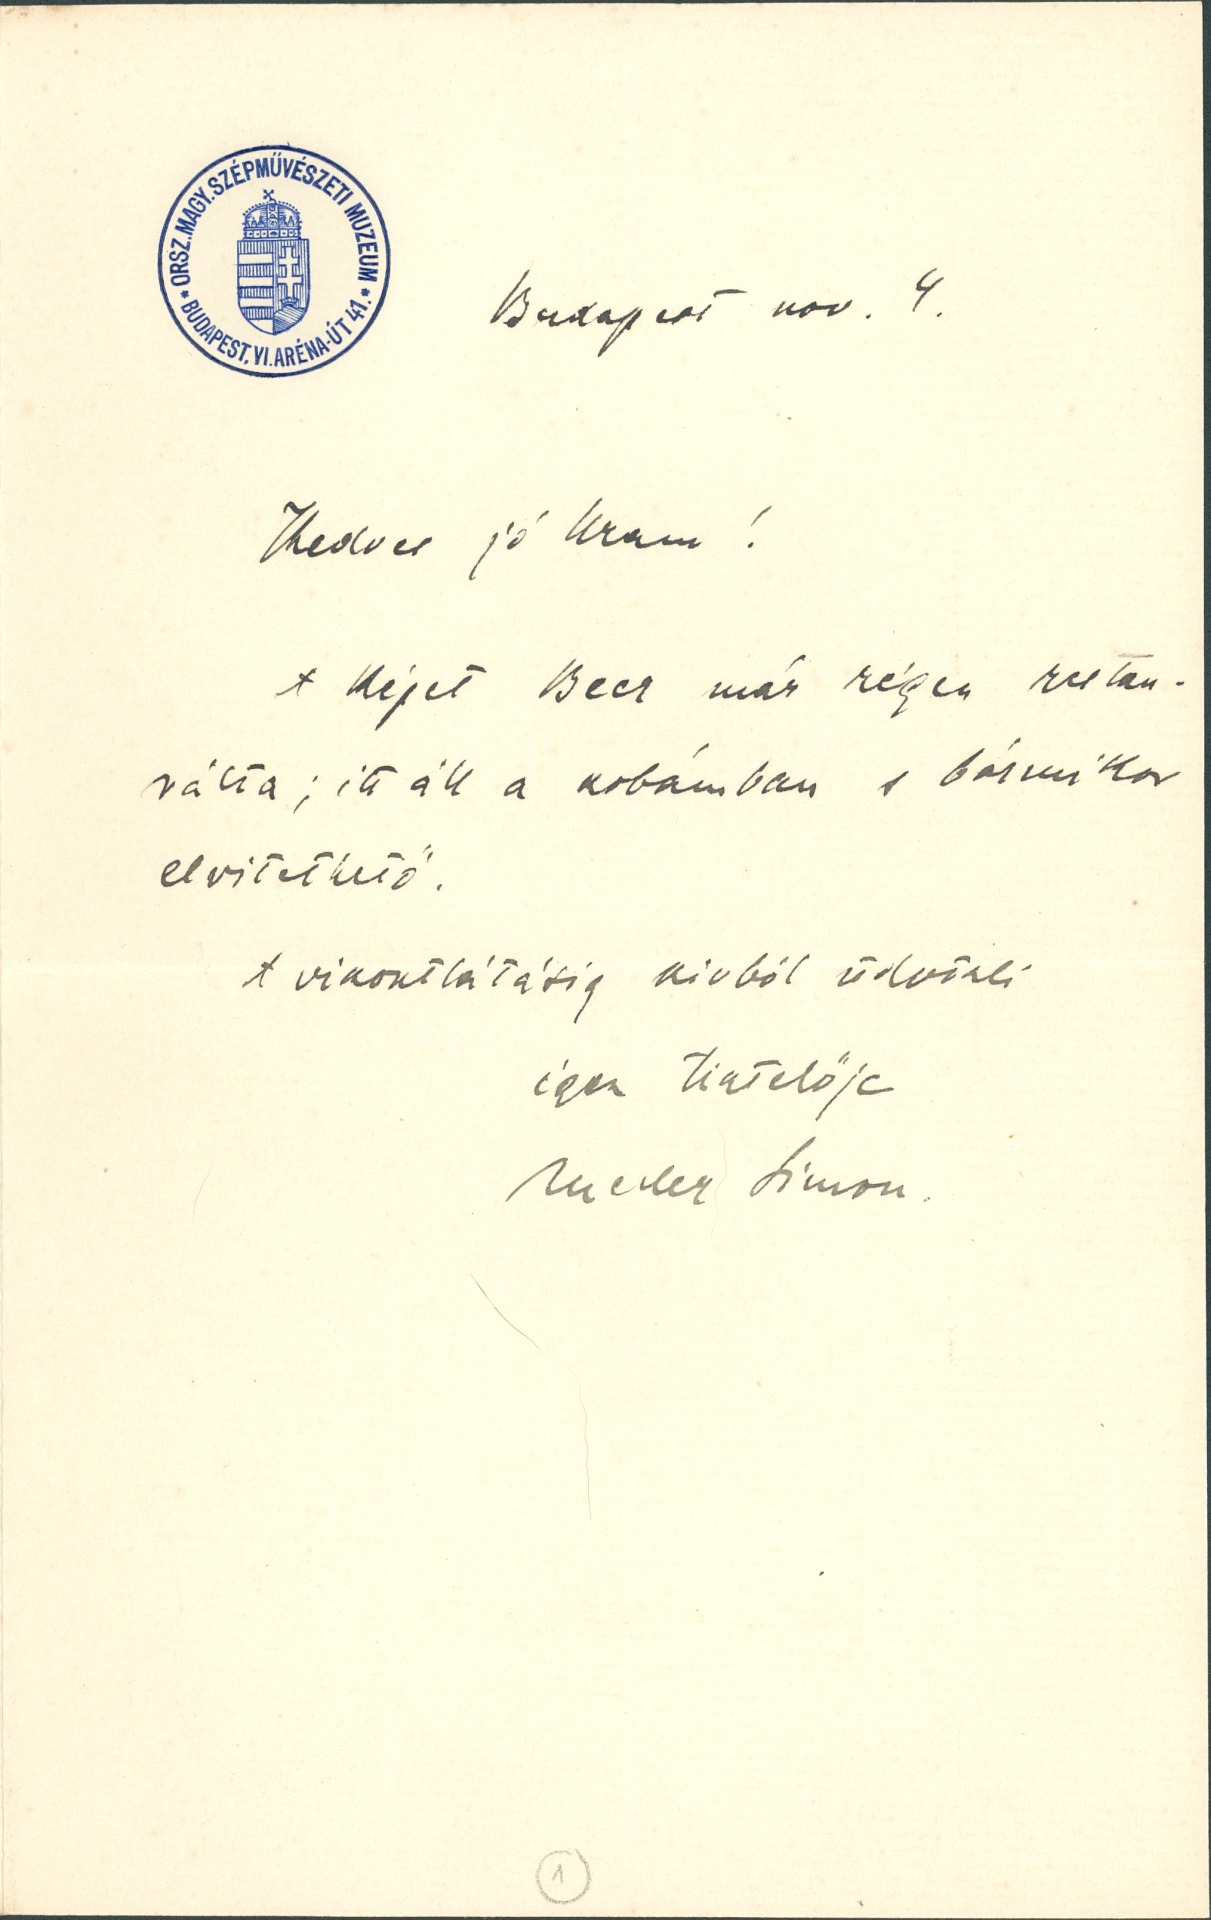 ORSZ. MAGY. SZÉPMŰVÉSZETI MUZEUM
* BUDAPEST, VI. ARÉNA-ÚT 41. *
Budapest nov. 4.
Kedves jó Uram!
A képet Beer már régen restau-
rálta; itt áll a szobámban s bármikor
elvitethető.
A viszontlátásig szivből üdvözli
igaz tisztelője
Meller Simon.
1